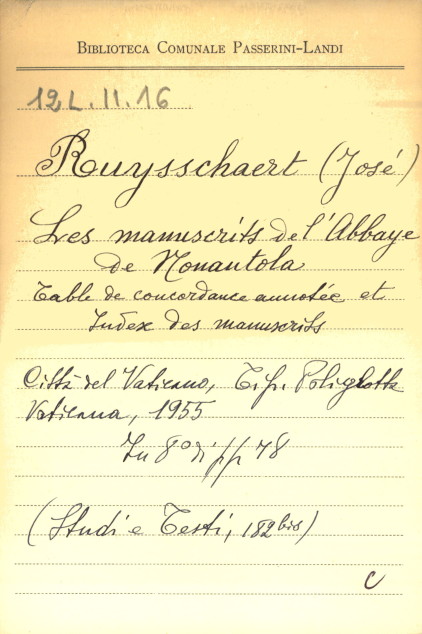 BIBLIOTECA COMUNALE PASSERINI-LANDI
12L.II.16
Ruysschaert (José)
Les manuscrits de l'Abbaye
de Nonantola
Table de concordance annotée et
Index des manuscrits
Città del Vaticano, Tip. Poliglotta
Vaticana, 1955
In 8° di pp 78
(Studi e Testi, 182 bis)
C